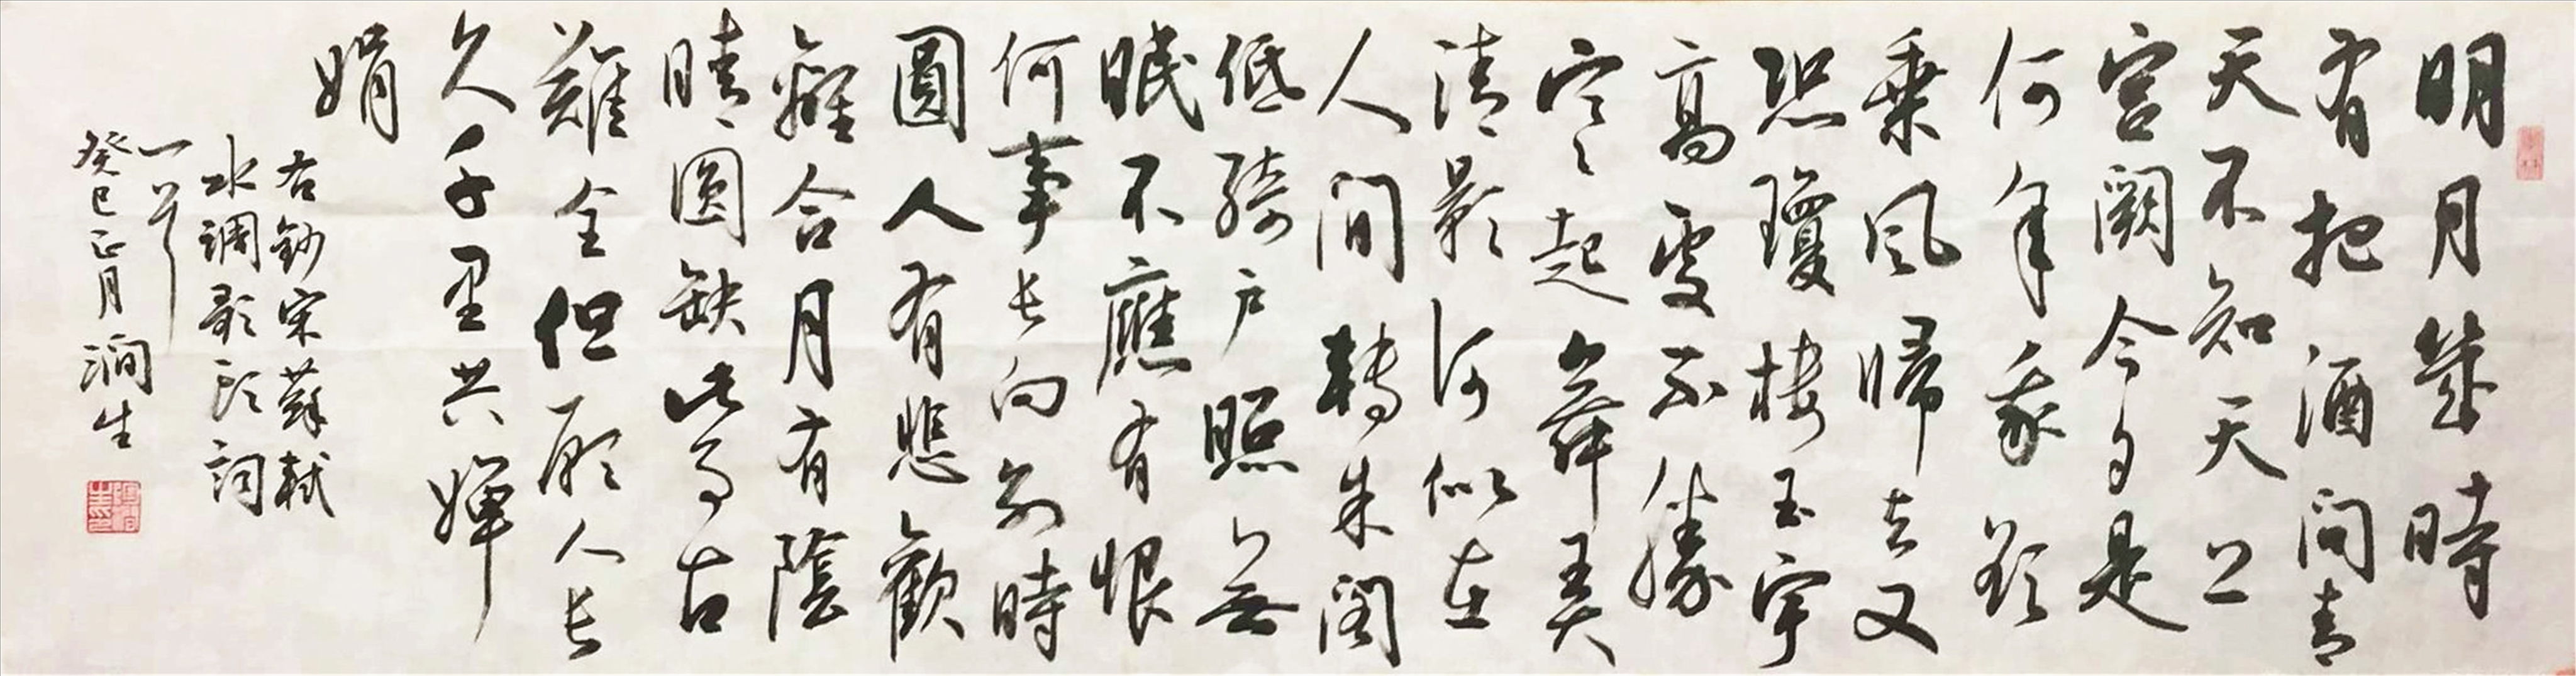 明月幾時
有把酒問青
天不知天上
宮闕今夕是
何年我欲
乘风歸去又
恐瓊楼玉宇
高處不勝
寒起舞弄
清影何似在
人間轉朱閣
低綺户照無
眠不應有恨
何事长向别時
圓人有悲歡
離合月有陰
晴圓缺此事古
難全但願人长
久千里共嬋
娟
右鈔宋蘇軾
水調歌頭詞
一首
癸巳正月澗生